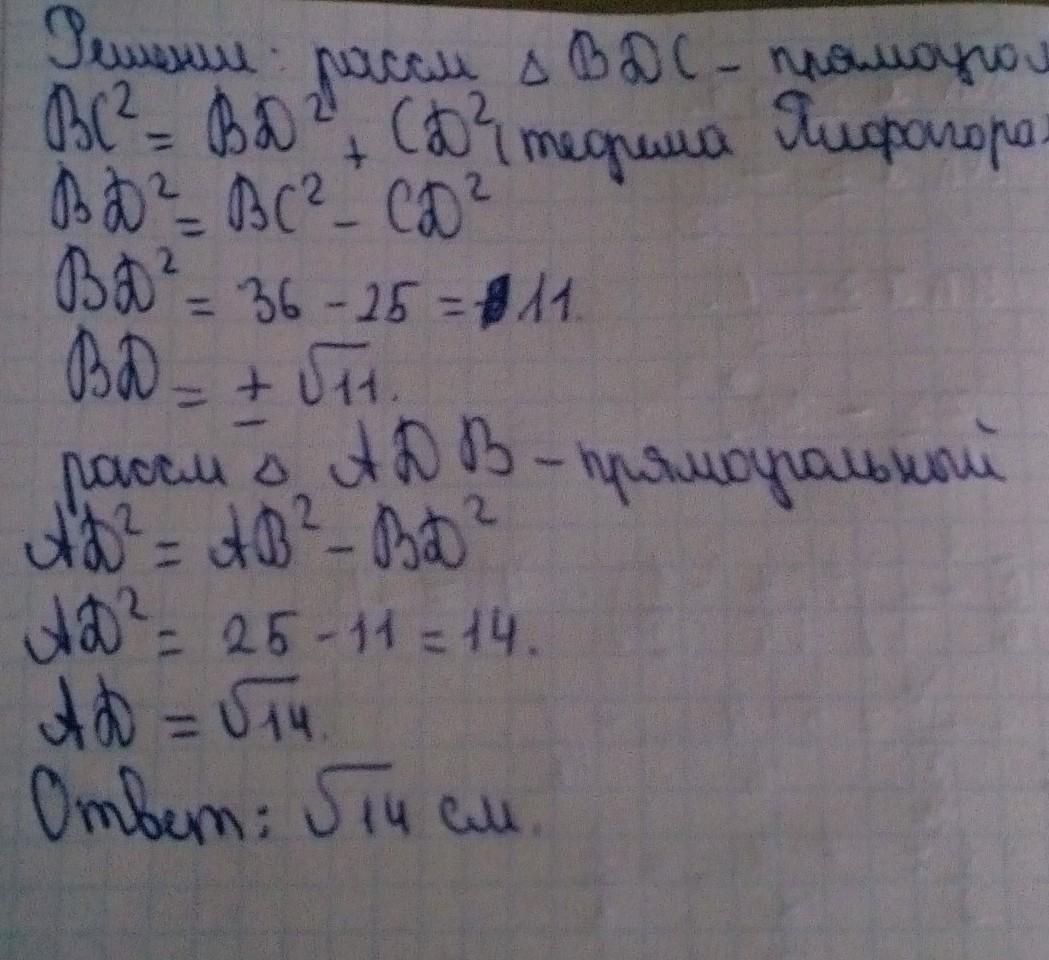 Решении: рассм △ BDC - прямоугол
BC² = BD² + CD² (теорима Пифагора)
BD² = BC² - CD²
BD² = 36 - 25 = 11.
BD = ± √11.
рассм △ ADB - прямоугольный
AD² = AB² - BD²
AD² = 25 - 11 = 14.
AD = √14.
Ответ: √14 см.